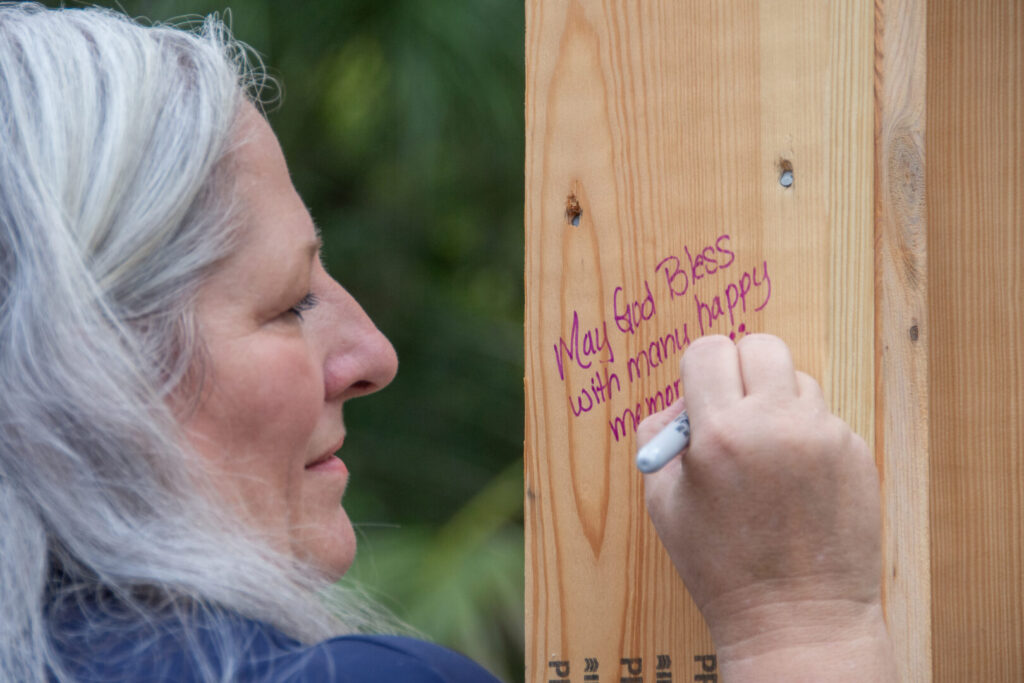 May God Bless
with many happy